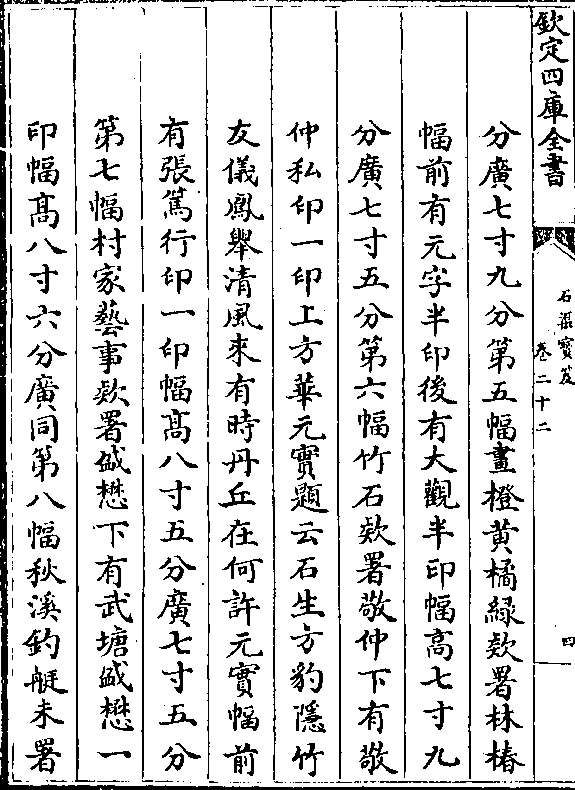 欽定四庫全書
石渠寶笈
卷二十二
四
分廣七寸九分第五幅畫橙黄橘緑欵署林椿
幅前有元字半印後有大觀半印幅高七寸九
分廣七寸五分第六幅竹石欵署敬仲下有敬
仲私印一印上方華元實題云石生方豹隱竹
友儀鳳舉清風來有時丹丘在何許元實幅前
有張篤行印一印幅髙八寸五分廣七寸五分
第七幅村家藝事欵署盛懋下有武塘盛懋一
印幅髙八寸六分廣同第八幅秋溪釣艇未署